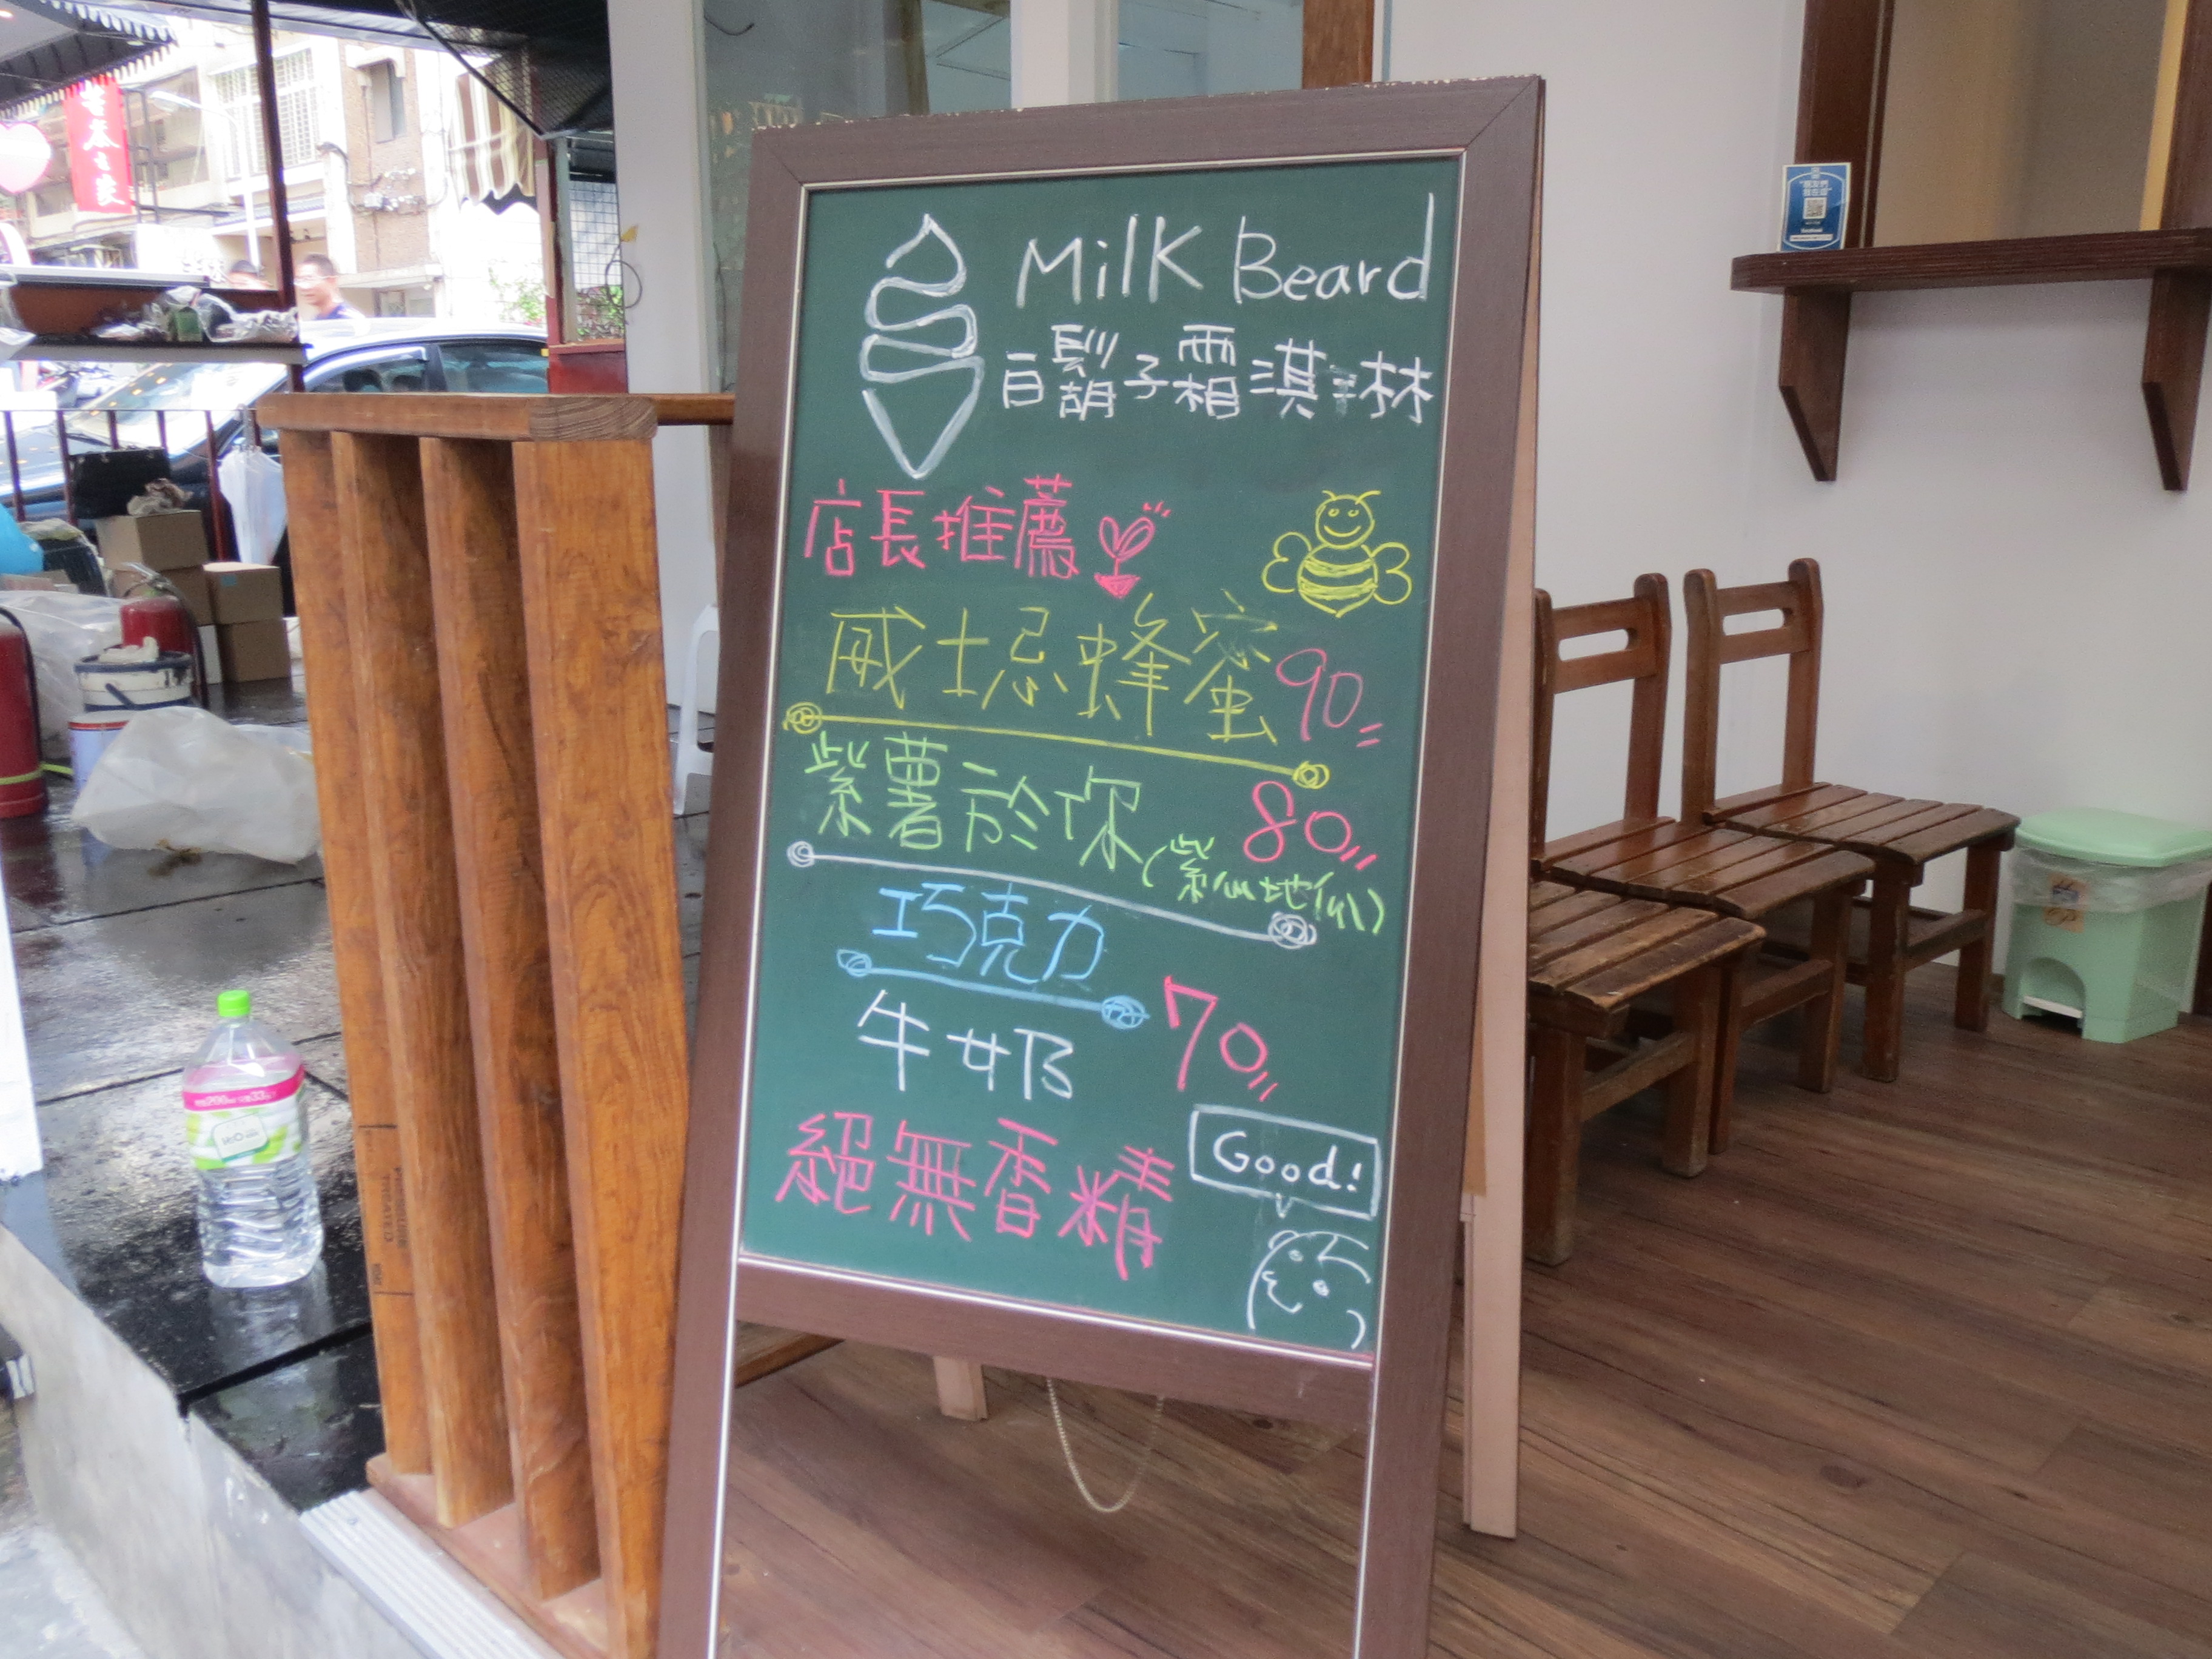 Milk Beard
白鬍子霜淇淋
店長推薦
威士忌蜂蜜 90
紫薯於你 80
(紫心地瓜)
巧克力
牛奶 70
絕無香精
Good!